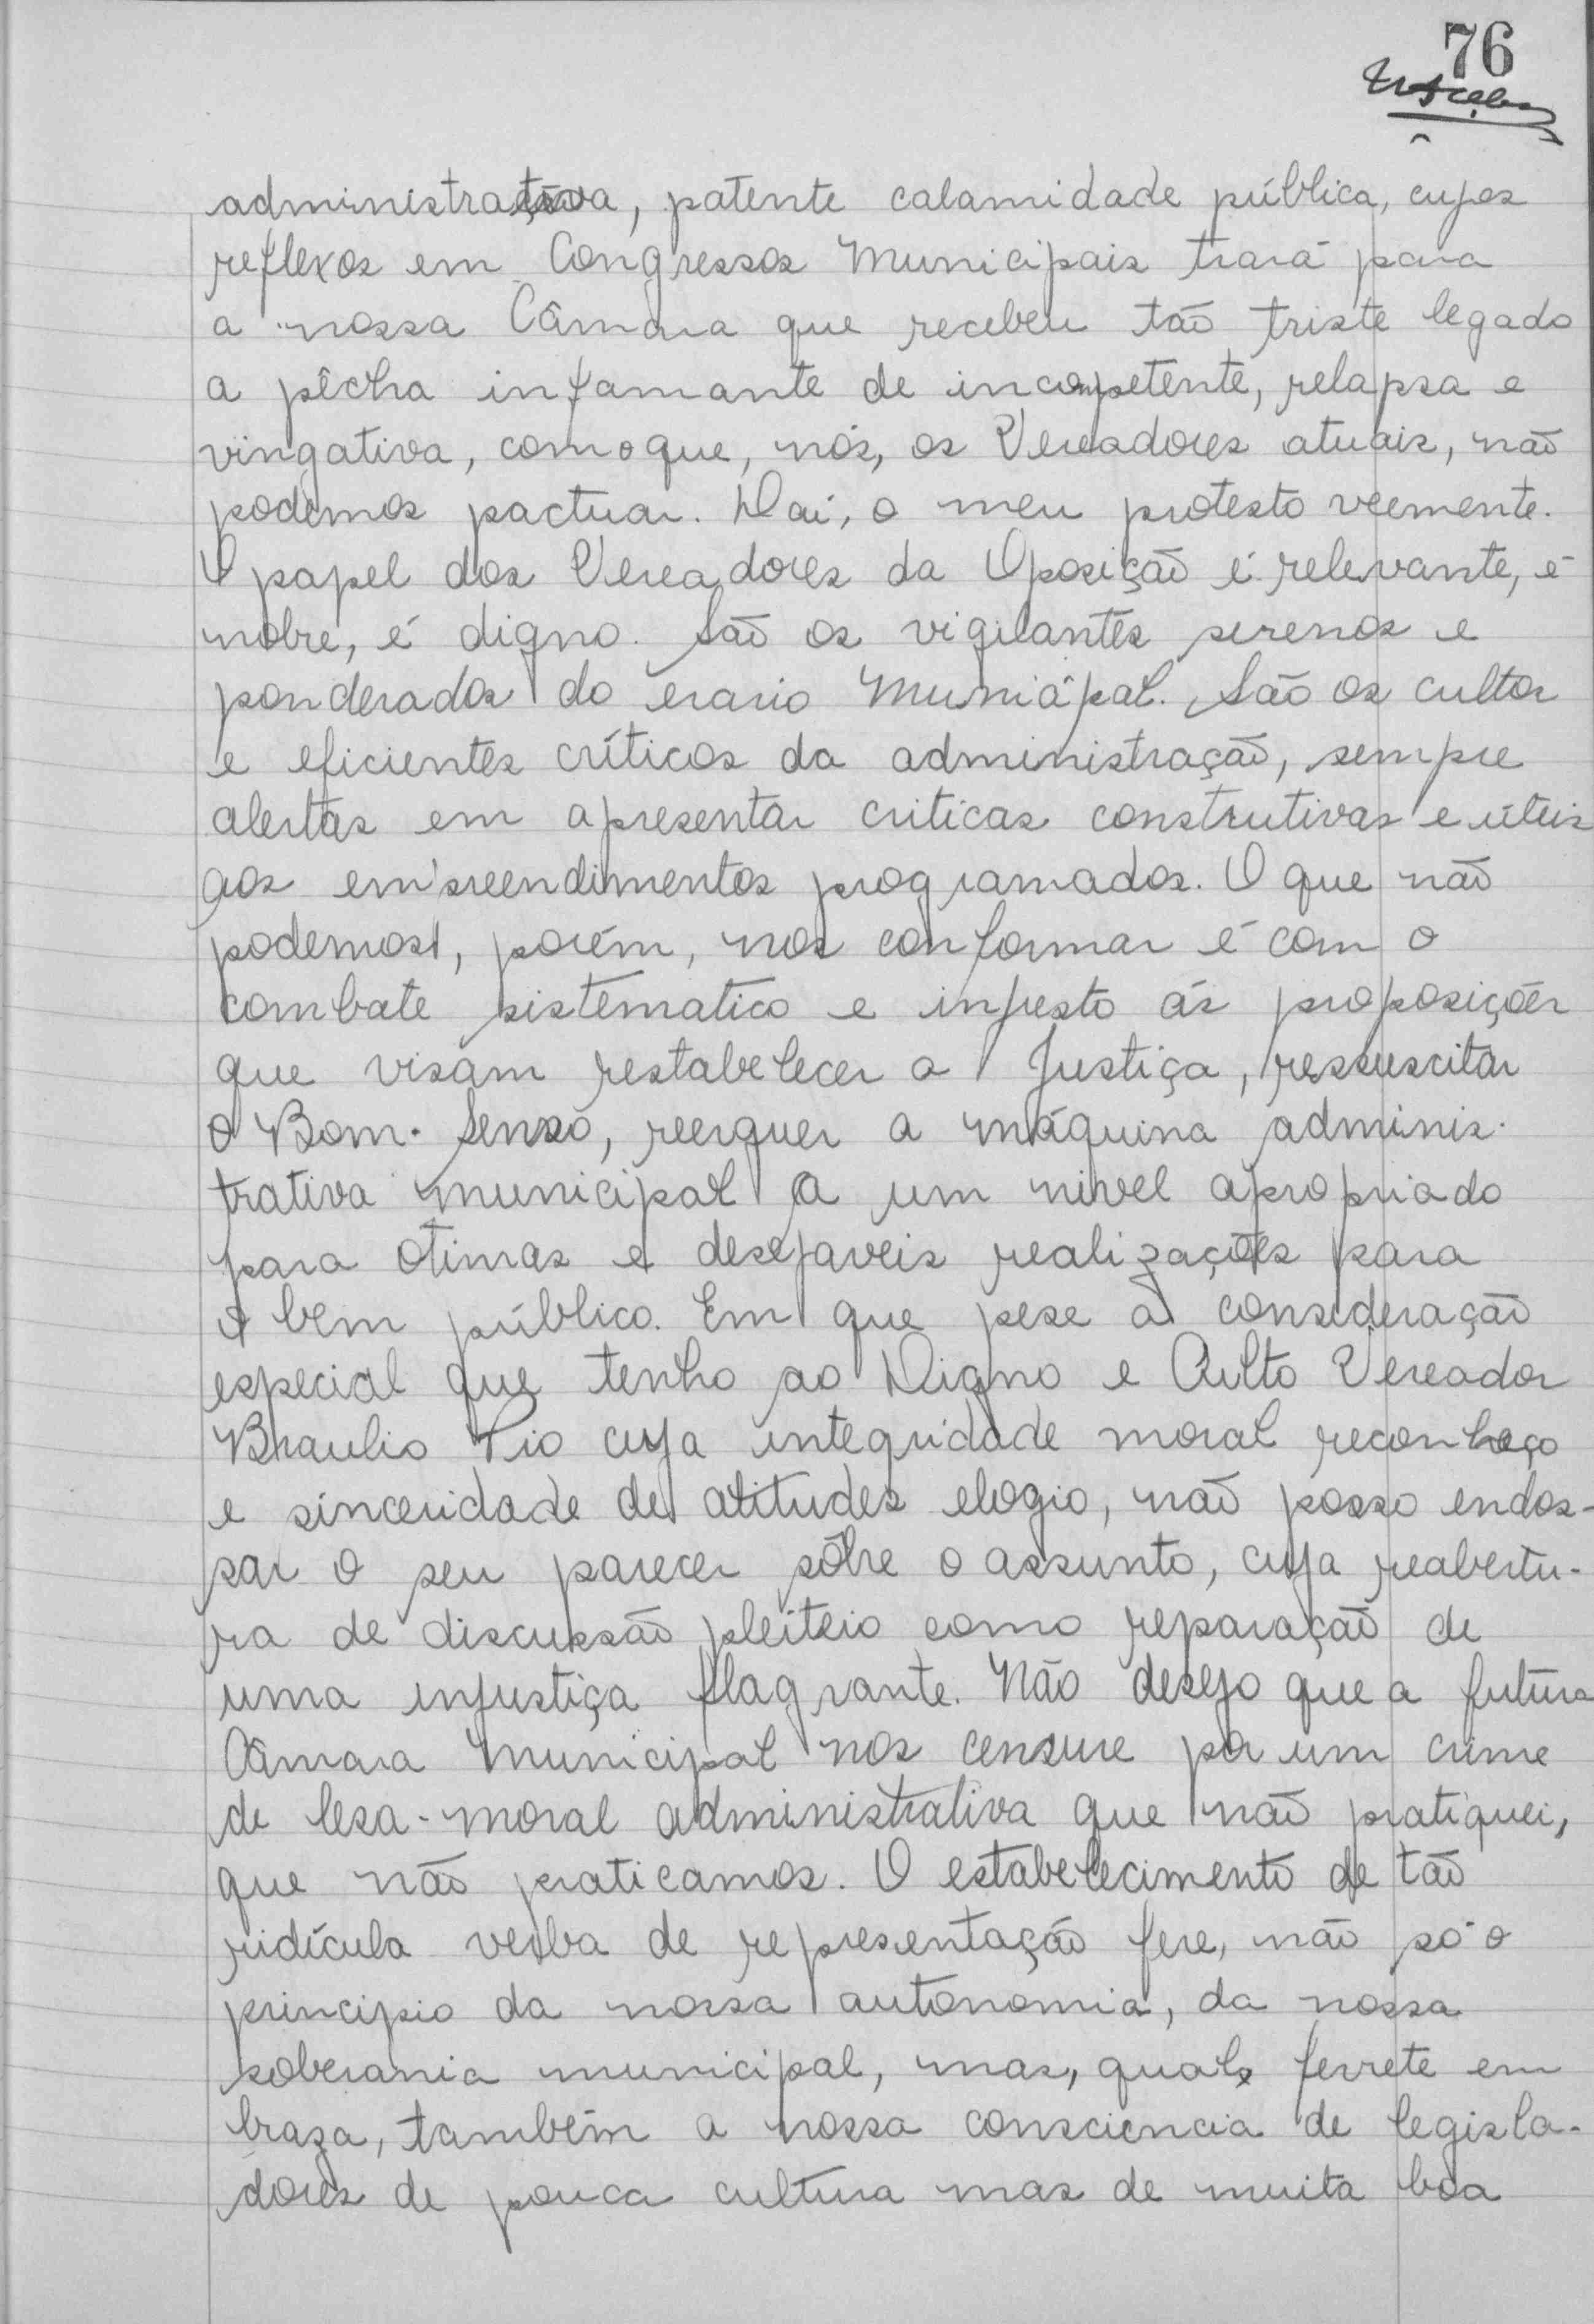 76
administrativa, patente calamidade pública, cujos
reflexos em Congressos Municipais trará para
a nossa Câmara que recebeu tão triste legado
a pêcha infamante de incompetente, relapsa e
vingativa, com o que, nós, os Vereadores atuais, não
podemos pactuar. Daí, o meu protesto veemente.
O papel dos Vereadores da Oposição é relevante, é
nobre, é digno. São os vigilantes serenos e
ponderados do erario Municipal. São os cultos
e eficientes críticos da administração, sempre
alertas em apresentar criticas construtivas e úteis
aos empreendimentos programados. O que não
podemos, porém, nos conformar é com o
combate sistematico e infesto ás proposições
que visam restabelecer a Justiça, ressuscitar
o Bom-Senso, reerguer a máquina adminis-
trativa municipal a um nivel apropriado
para otimas e desejaveis realizações para
o bem público. Em que pese a consideração
especial que tenho ao Digno e Culto Vereador
Braulio Pio cuja integridade moral reconheço
e sinceridade de atitudes elogio, não posso endos-
sar o seu parecer sôbre o assunto, cuja reabertu-
ra de discussão pleiteio como reparação de
uma injustiça flagrante. Não desejo que a futura
Câmara Municipal nos censure por um crime
de lesa-moral administrativa que não pratiquei,
que não praticamos. O estabelecimento de tão
ridícula verba de representação fere, não só o
principio da nossa autonomia, da nossa
soberania municipal, mas, qual ferrete em
braza, também a nossa consciencia de legisla-
dores de pouca cultura mas de muita boa